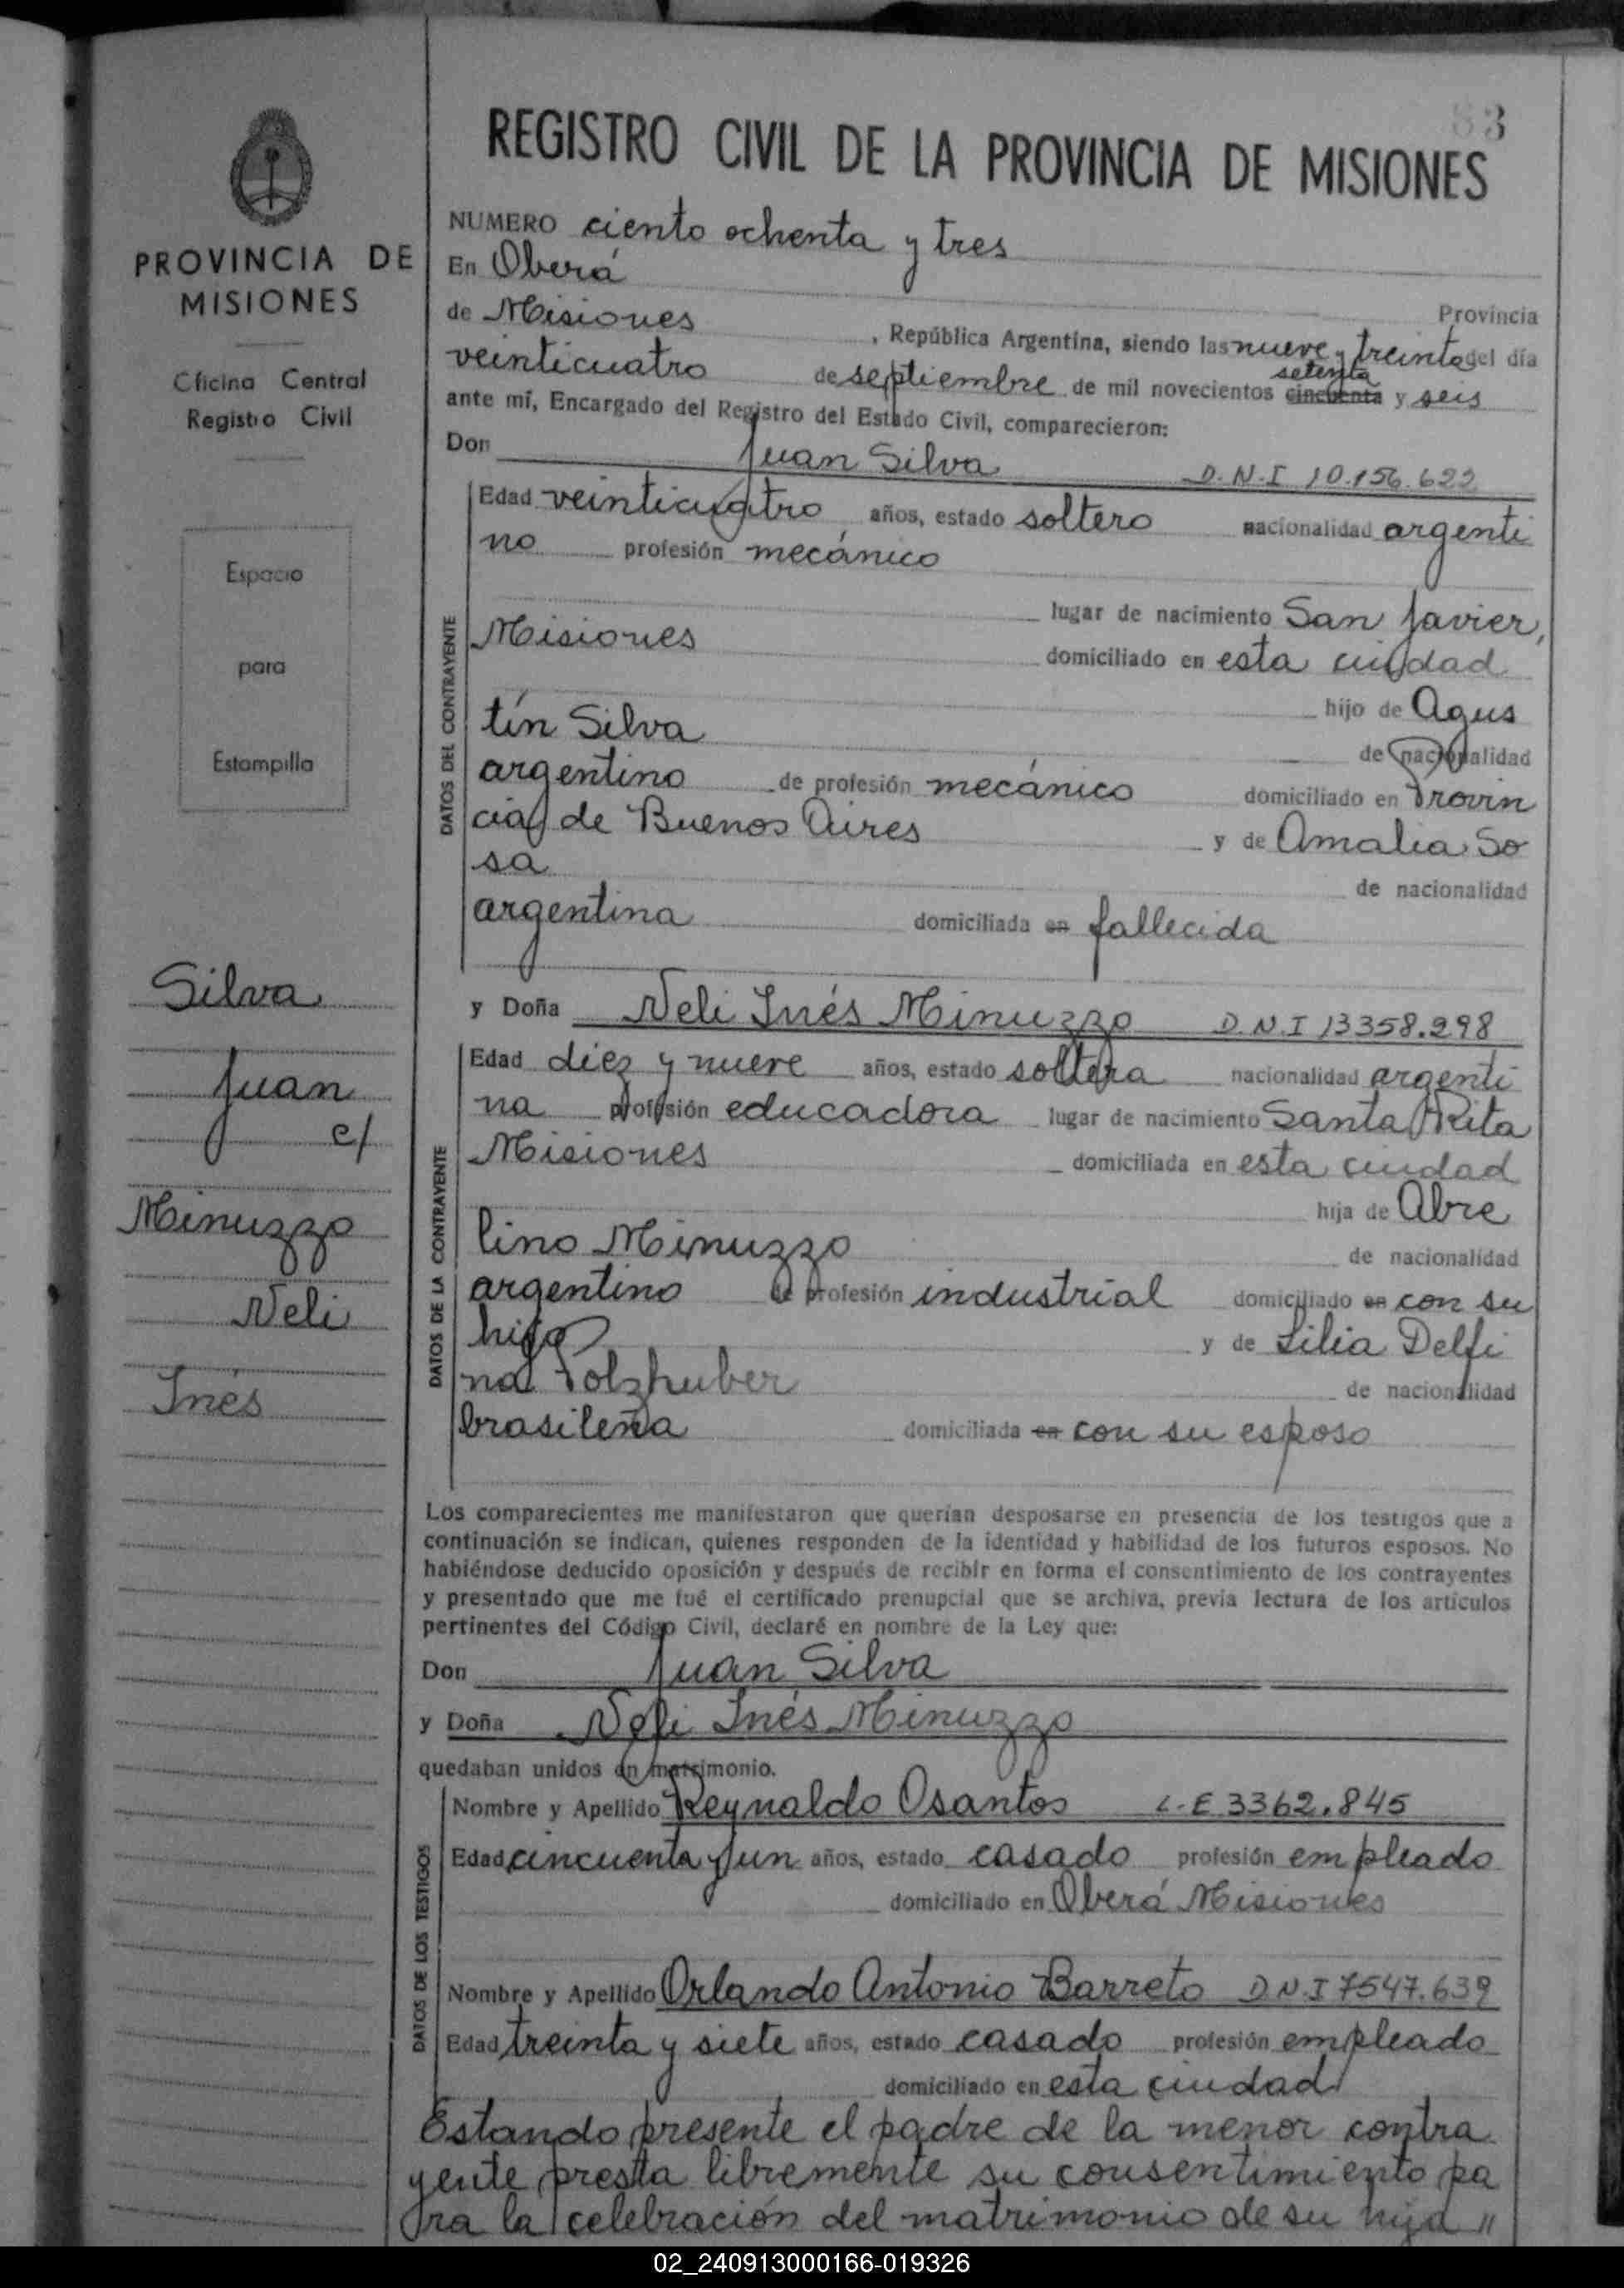 83
REGISTRO CIVIL DE LA PROVINCIA DE MISIONES
PROVINCIA DE
MISIONES
Oficina Central
Registro Civil
Espacio
para
Estampilla
Silva
Juan
c/
Minuzzo
Neli
Inés
NUMERO ciento ochenta y tres
En Oberá
Provincia
de Misiones, República Argentina, siendo las nueve y treinta del día
setenta
veinticuatro de septiembre de mil novecientos cincuenta y seis
ante mí, Encargado del Registro del Estado Civil, comparecieron:
Don Juan Silva D.N.I 10.156.622
DATOS DEL CONTRAYENTE
Edad veinticuatro años, estado soltero nacionalidad argenti
no profesión mecánico
lugar de nacimiento San Javier,
Misiones domiciliado en esta ciudad
hijo de Agus
tín Silva de nacionalidad
argentino de profesión mecánico domiciliado en Provin
cia de Buenos Aires y de Amalia So
sa de nacionalidad
argentina domiciliada en fallecida
y Doña Neli Inés Minuzzo D.N.I 13358.298
DATOS DE LA CONTRAYENTE
Edad diez y nueve años, estado soltera nacionalidad argenti
na profesión educadora lugar de nacimiento Santa Rita
Misiones domiciliada en esta ciudad
hija de Abre
lino Minuzzo de nacionalidad
argentino de profesión industrial domiciliado en con su
hija y de Lilia Delfi
na Polzhuber de nacionalidad
brasileña domiciliada en con su esposo
Los comparecientes me manifestaron que querían desposarse en presencia de los testigos que a
continuación se indican, quienes responden de la identidad y habilidad de los futuros esposos. No
habiéndose deducido oposición y después de recibir en forma el consentimiento de los contrayentes
y presentado que me fué el certificado prenupcial que se archiva, previa lectura de los artículos
pertinentes del Código Civil, declaré en nombre de la Ley que:
Don Juan Silva
y Doña Neli Inés Minuzzo
quedaban unidos en matrimonio.
DATOS DE LOS TESTIGOS
Nombre y Apellido Reynaldo Osantos L.E 3362.845
Edad cincuenta y un años, estado casado profesión empleado
domiciliado en Oberá Misiones
Nombre y Apellido Orlando Antonio Barreto D.N.I 7547.639
Edad treinta y siete años, estado casado profesión empleado
domiciliado en esta ciudad
Estando presente el padre de la menor contra
yente presta libremente su consentimiento pa
ra la celebración del matrimonio de su hija "
02_240913000166-019326